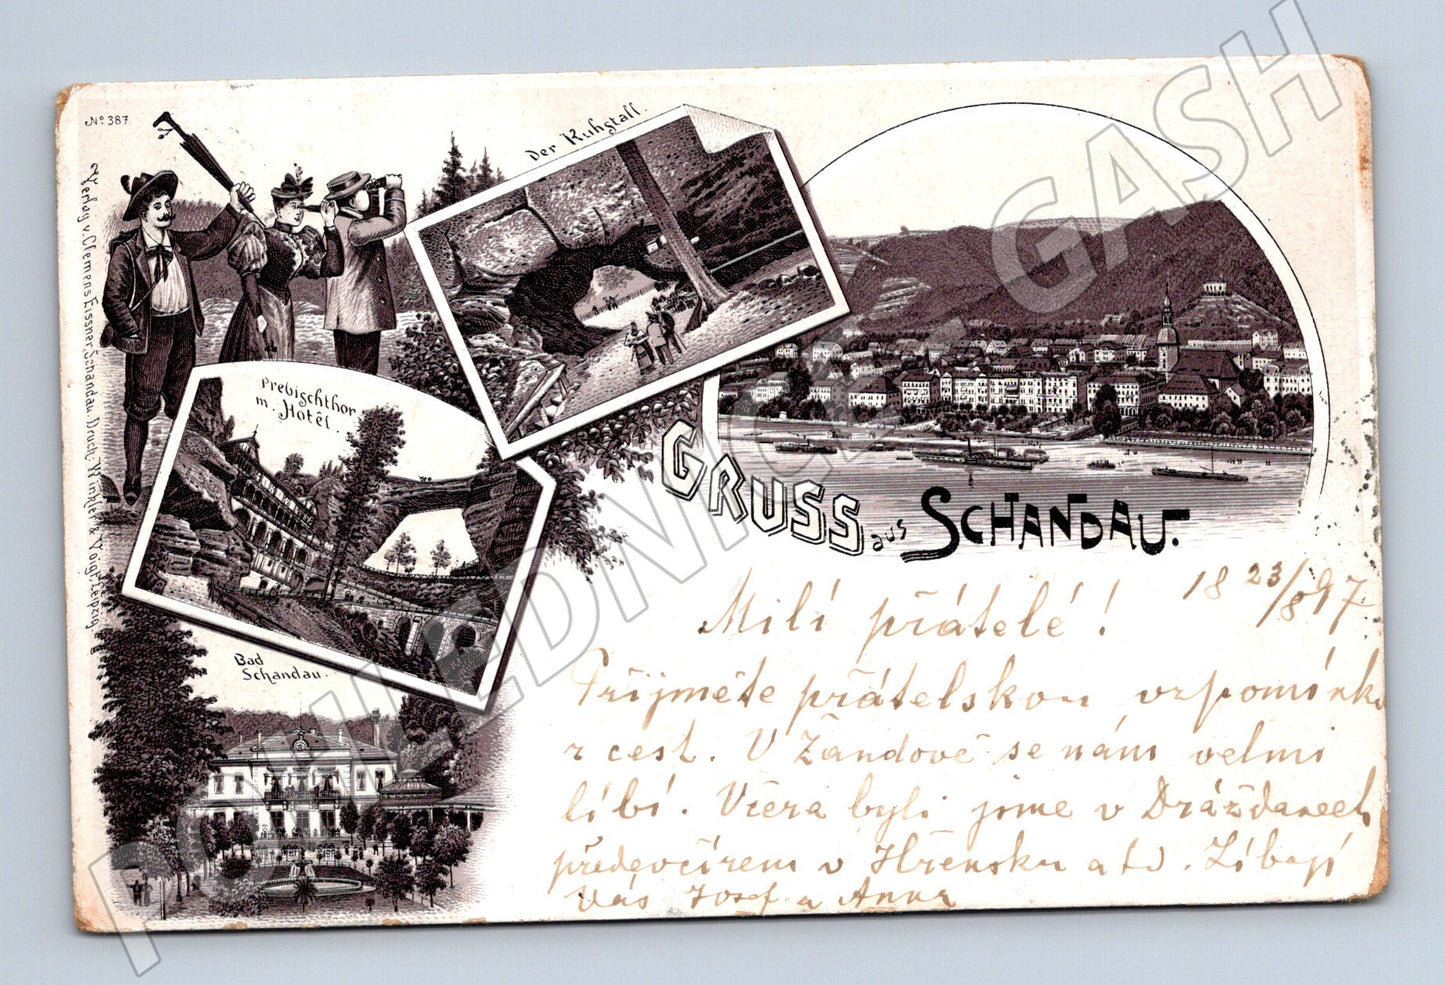 No. 387
Verlag v. Clemens Eissner, Schandau. Druck: Winkler & Voigt, Leipzig.
Der Kuhstall.
Prebischthor
m. Hotêl.
Bad
Schandau.
GRUSS aus SCHANDAU.
18 23/8 97.
Milí přátelé!
Přijměte přátelskou vzpomínku
z cest. V Žandově se nám velmi
líbí. Včera byli jsme v Drážďanech
předevčírem v Hřensku a t d. Líbají
Vás Josef a Anna
POHLEDNICE - GASH